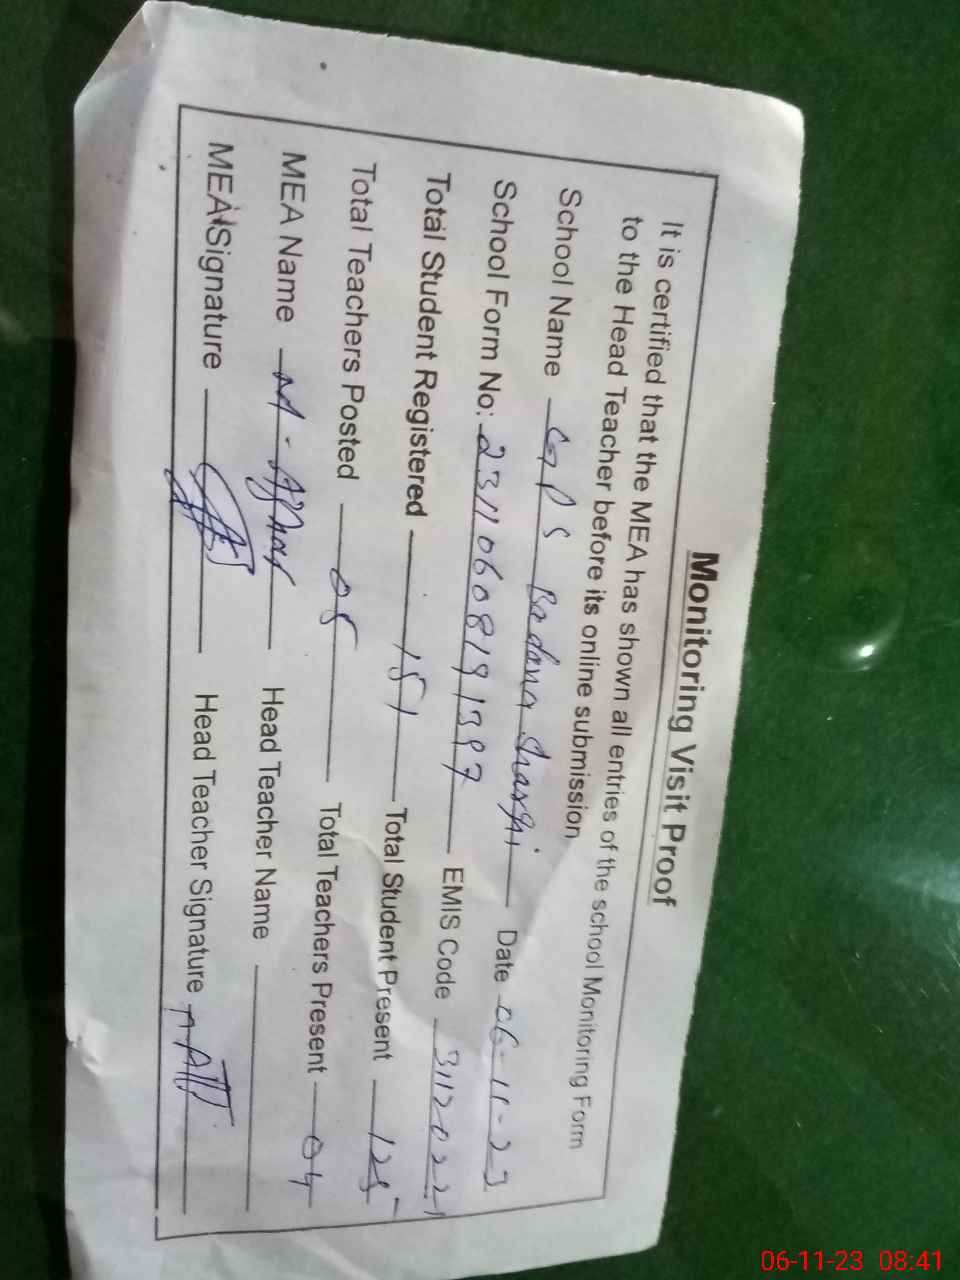 Monitoring Visit Proof
It is certified that the MEA has shown all entries of the school Monitoring Form
to the Head Teacher before its online submission
School Name GPS Badana Sharqi Date 06-11-23
School Form No: 23110608191397 EMIS Code
Total Student Registered 151 Total Student Present 125
Total Teachers Posted 05 Total Teachers Present 04
MEA Name Head Teacher Name
MEA Signature Head Teacher Signature
06-11-23 08:41